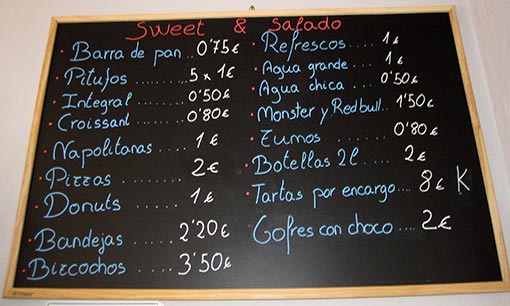 Sweet & Salado
· Barra de pan .. 0'75€
· Pitufos ........ 5 x 1€
· Integral ....... 0'50€
· Croissant ..... 0'80€
· Napolitanas .... 1€
· Pizzas ....... 2€
· Donuts ..... 1€
· Bandejas ..... 2'20€
· Bizcochos .... 3'50€
· Refrescos ..... 1€
· Agua grande .... 1€
· Agua chica .... 0'50€
· Monster y Redbull .. 1'50€
· Zumos ...... 0'80€
· Botellas 2l ..... 2€
· Tartas por encargo .... 8€ K
Gofres con choco .. 2€